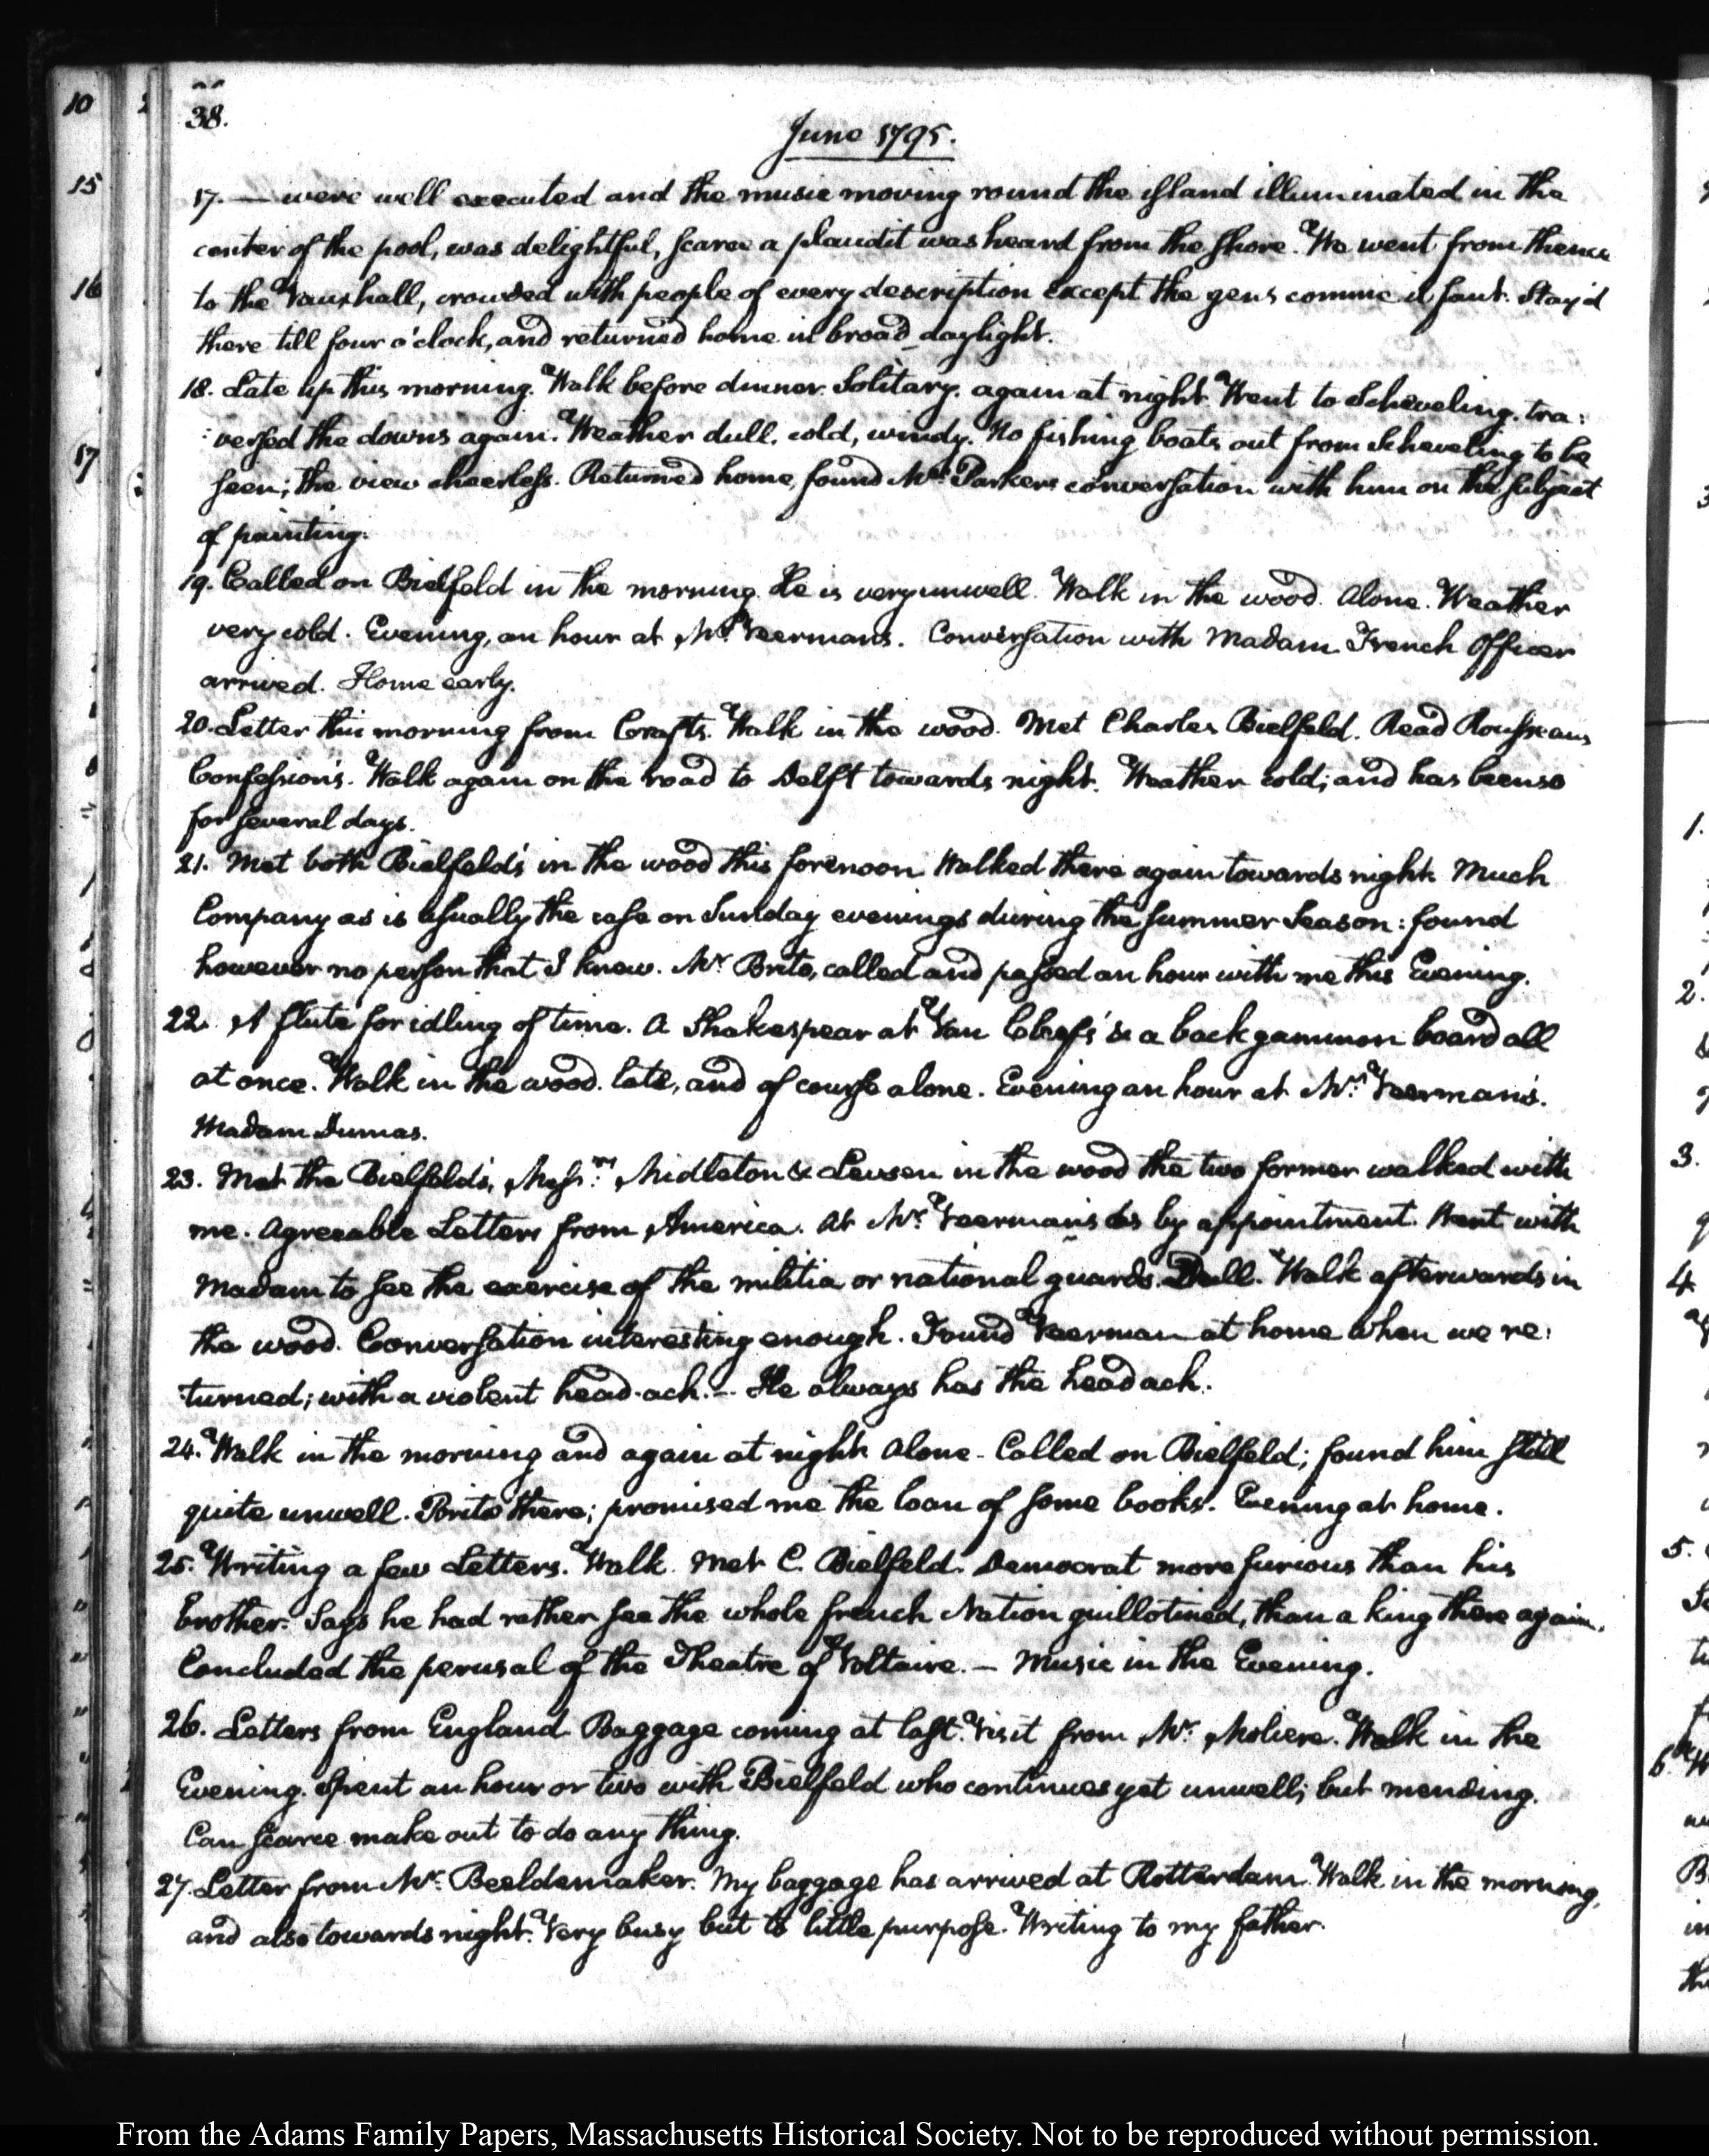 38.
June 1795.
17. — were well executed and the music moving round the island illuminated in the
center of the pool, was delightful, scarce a plaudit was heard from the shore. We went from thence
to the Vauxhall, crowded with people of every description except the gens comme il faut. Stay'd
there till four o'clock, and returned home in broad daylight.
18. Late up this morning. Walk before dinner. Solitary. again at night. Went to Scheveling. tra:
:versed the downs again. Weather dull, cold, windy. No fishing boats out from Scheveling to be
seen; the view cheerless. Returned home, found Mr. Parker conversation with him on the subject
of painting.
19. Called on Bielfeld in the morning. He is very unwell. Walk in the wood. Alone. Weather
very cold. Evening, an hour at Mr. Veerman's. Conversation with Madam. French Officer
arrived. Home early.
20. Letter this morning from Crafts. Walk in the wood. Met Charles Bielfeld. Read Rousseaus
Confessions. Walk again on the road to Delft towards night. Weather cold; and has been so
for several days.
21. Met both Bielfeld's in the wood this forenoon. Walked there again towards night. Much
Company as is usually the case on Sunday evenings during the summer Season: found
however no person that I knew. Mr. Brito, called and passed an hour with me this Evening.
22. A flute for idling of time. A Shakespear at Van Cleef's & a back gammon board all
at once. Walk in the wood. late, and of course alone. Evening an hour at Mr. Veerman's.
Madam Dumas.
23. Met the Bielfelds, Messrs. Midleton & Levsen in the wood the two former walked with
me. Agreeable Letters from America. At Mr. Veerman's by appointment. Went with
Madam to see the exercise of the militia or national guards. Dull. Walk afterwards in
the wood. Conversation interesting enough. Found Veerman at home when we re:
:turned; with a violent head-ach. — He always has the head ach.
24. Walk in the morning and again at night alone. Called on Bielfeld; found him still
quite unwell. Brito there; promised me the loan of some books. Evening at home.
25. Writing a few Letters. Walk. Met C. Bielfeld. Democrat more furious than his
brother. Says he had rather see the whole french Nation guillotined, than a king there again.
Concluded the perusal of the Theatre of Voltaire. — Music in the Evening.
26. Letters from England. Baggage coming at last. Visit from Mr. Moliere. Walk in the
Evening. Spent an hour or two with Bielfeld who continues yet unwell; but mending.
Can scarce make out to do any thing.
27. Letter from Mr. Beeldemaker. My baggage has arrived at Rotterdam. Walk in the morning,
and also towards night. Very busy but to little purpose. Writing to my father.
10
15
16
17
1.
2.
3.
4
5.
6.
From the Adams Family Papers, Massachusetts Historical Society. Not to be reproduced without permission.